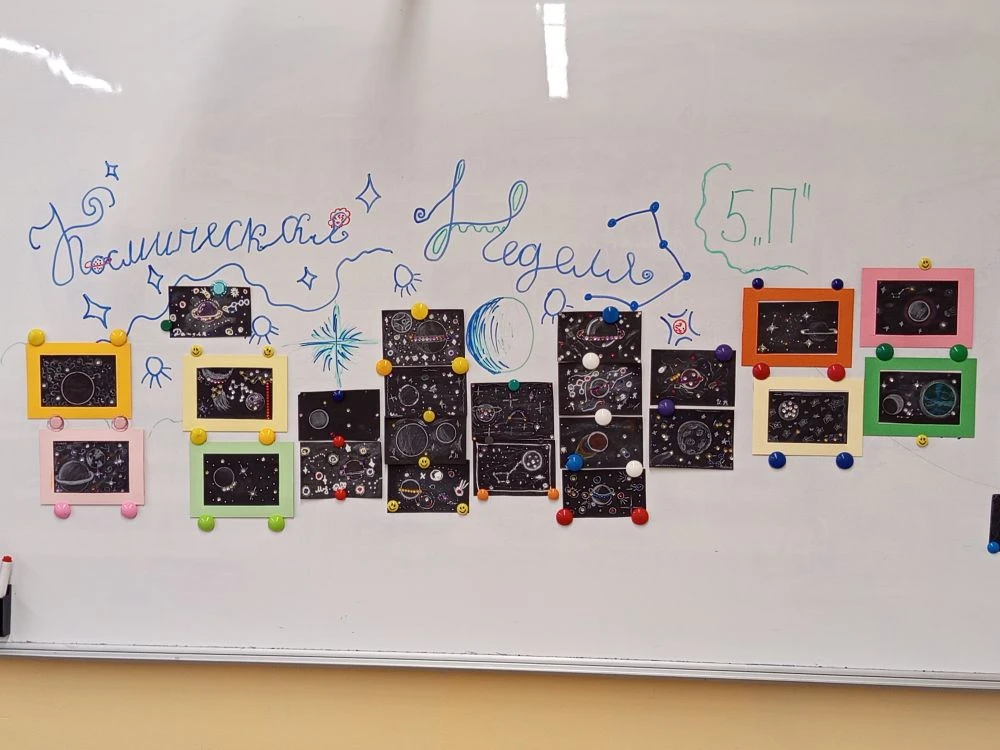 Космическая Неделя 5„П"